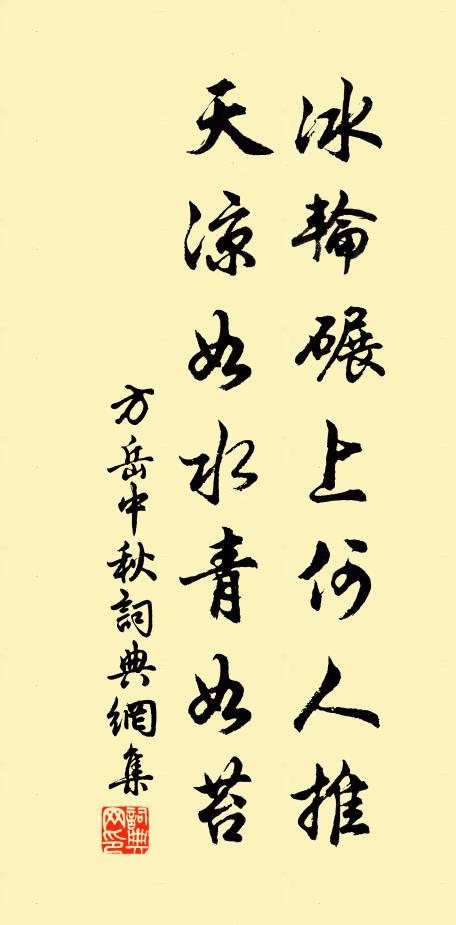 冰輪碾上何人推
天涼如水青如苔
方岳中秋詞典網集
詞典网印